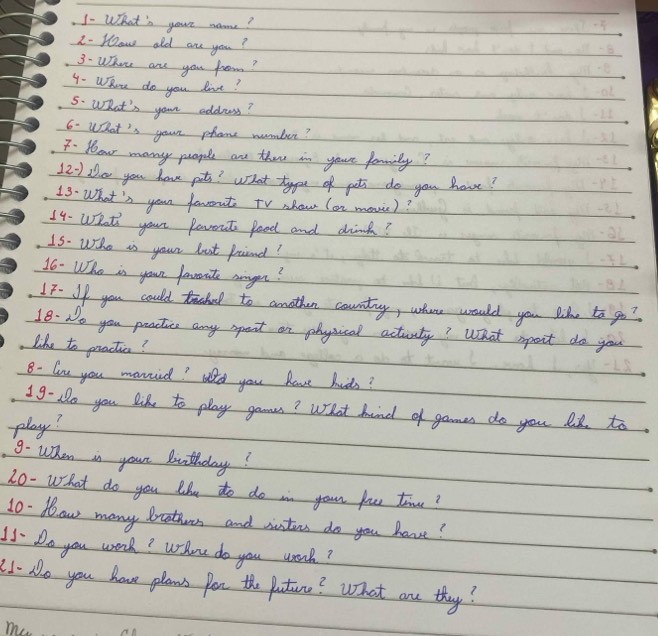 1- What's your name?
2- How old are you?
3- Where are you from?
4- Where do you live?
5- What's your address?
6- What's your phone number?
7- How many people are there in your family?
12-) Do you have pets? What type of pets do you have?
13- What's your favorite TV show (or movie)?
14- What's your favorite food and drink?
15- Who is your best friend?
16- Who is your favorite singer?
17- If you could to another country, where would you like to go?
18- Do you practice any sport or physical activity? What sport do you
like to practice?
8- Are you married? Do you have kids?
19- Do you like to play games? What kind of games do you like to
play?
9- When is your birthday?
20- What do you like to do in your free time?
10- How many brothers and sisters do you have?
11- Do you work? Where do you work?
21- Do you have plans for the future? What are they?